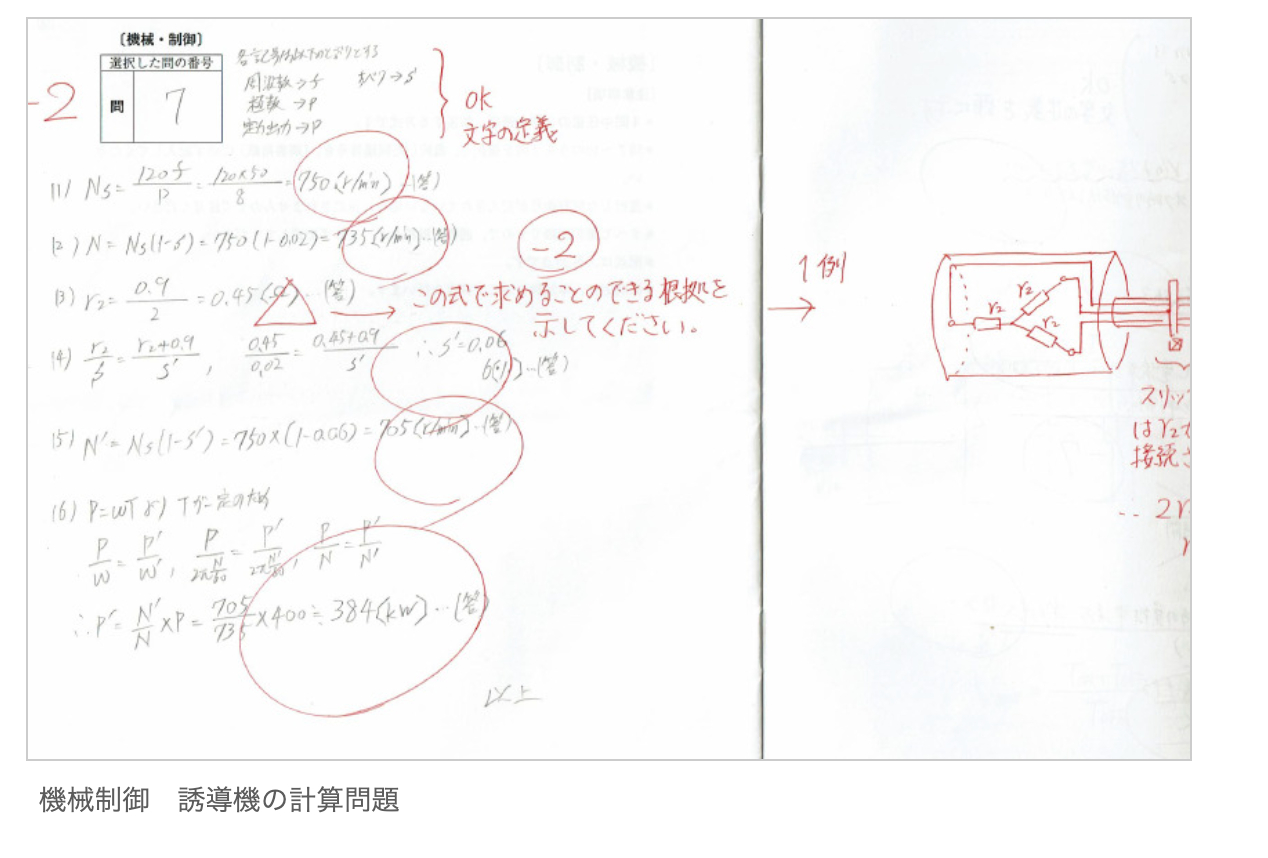 〔機械・制御〕
選択した問の番号
問 7
-2
各記号は以下のとおりとする
周波数→f すべり→s
極数→P
定格出力→P
OK
文字の定義
(1) Ns=120f/P=120×50/8=750(r/min)…(答)
(2) N=Ns(1-s)=750(1-0.02)=735(r/min)…(答)
-2
(3) r2=0.9/2=0.45(Ω) (答)
→この式で求めることのできる根拠を
示してください。
(4) r2/s=r2+0.9/s', 0.45/0.02=0.45+0.9/s' ∴s'=0.06
6(%)…(答)
(5) N'=Ns(1-s')=750×(1-0.06)=705(r/min)…(答)
(6) P=ωTより Tが一定のため
P/ω=P'/ω', P/2πN/60=P'/2πN'/60, P/N=P'/N'
∴P'=N'/N×P=705/735×400≒384(kW)…(答)
以上
→1例
r2 r2
r2
スリッ
はr2
接続さ
‥2r
機械制御　誘導機の計算問題